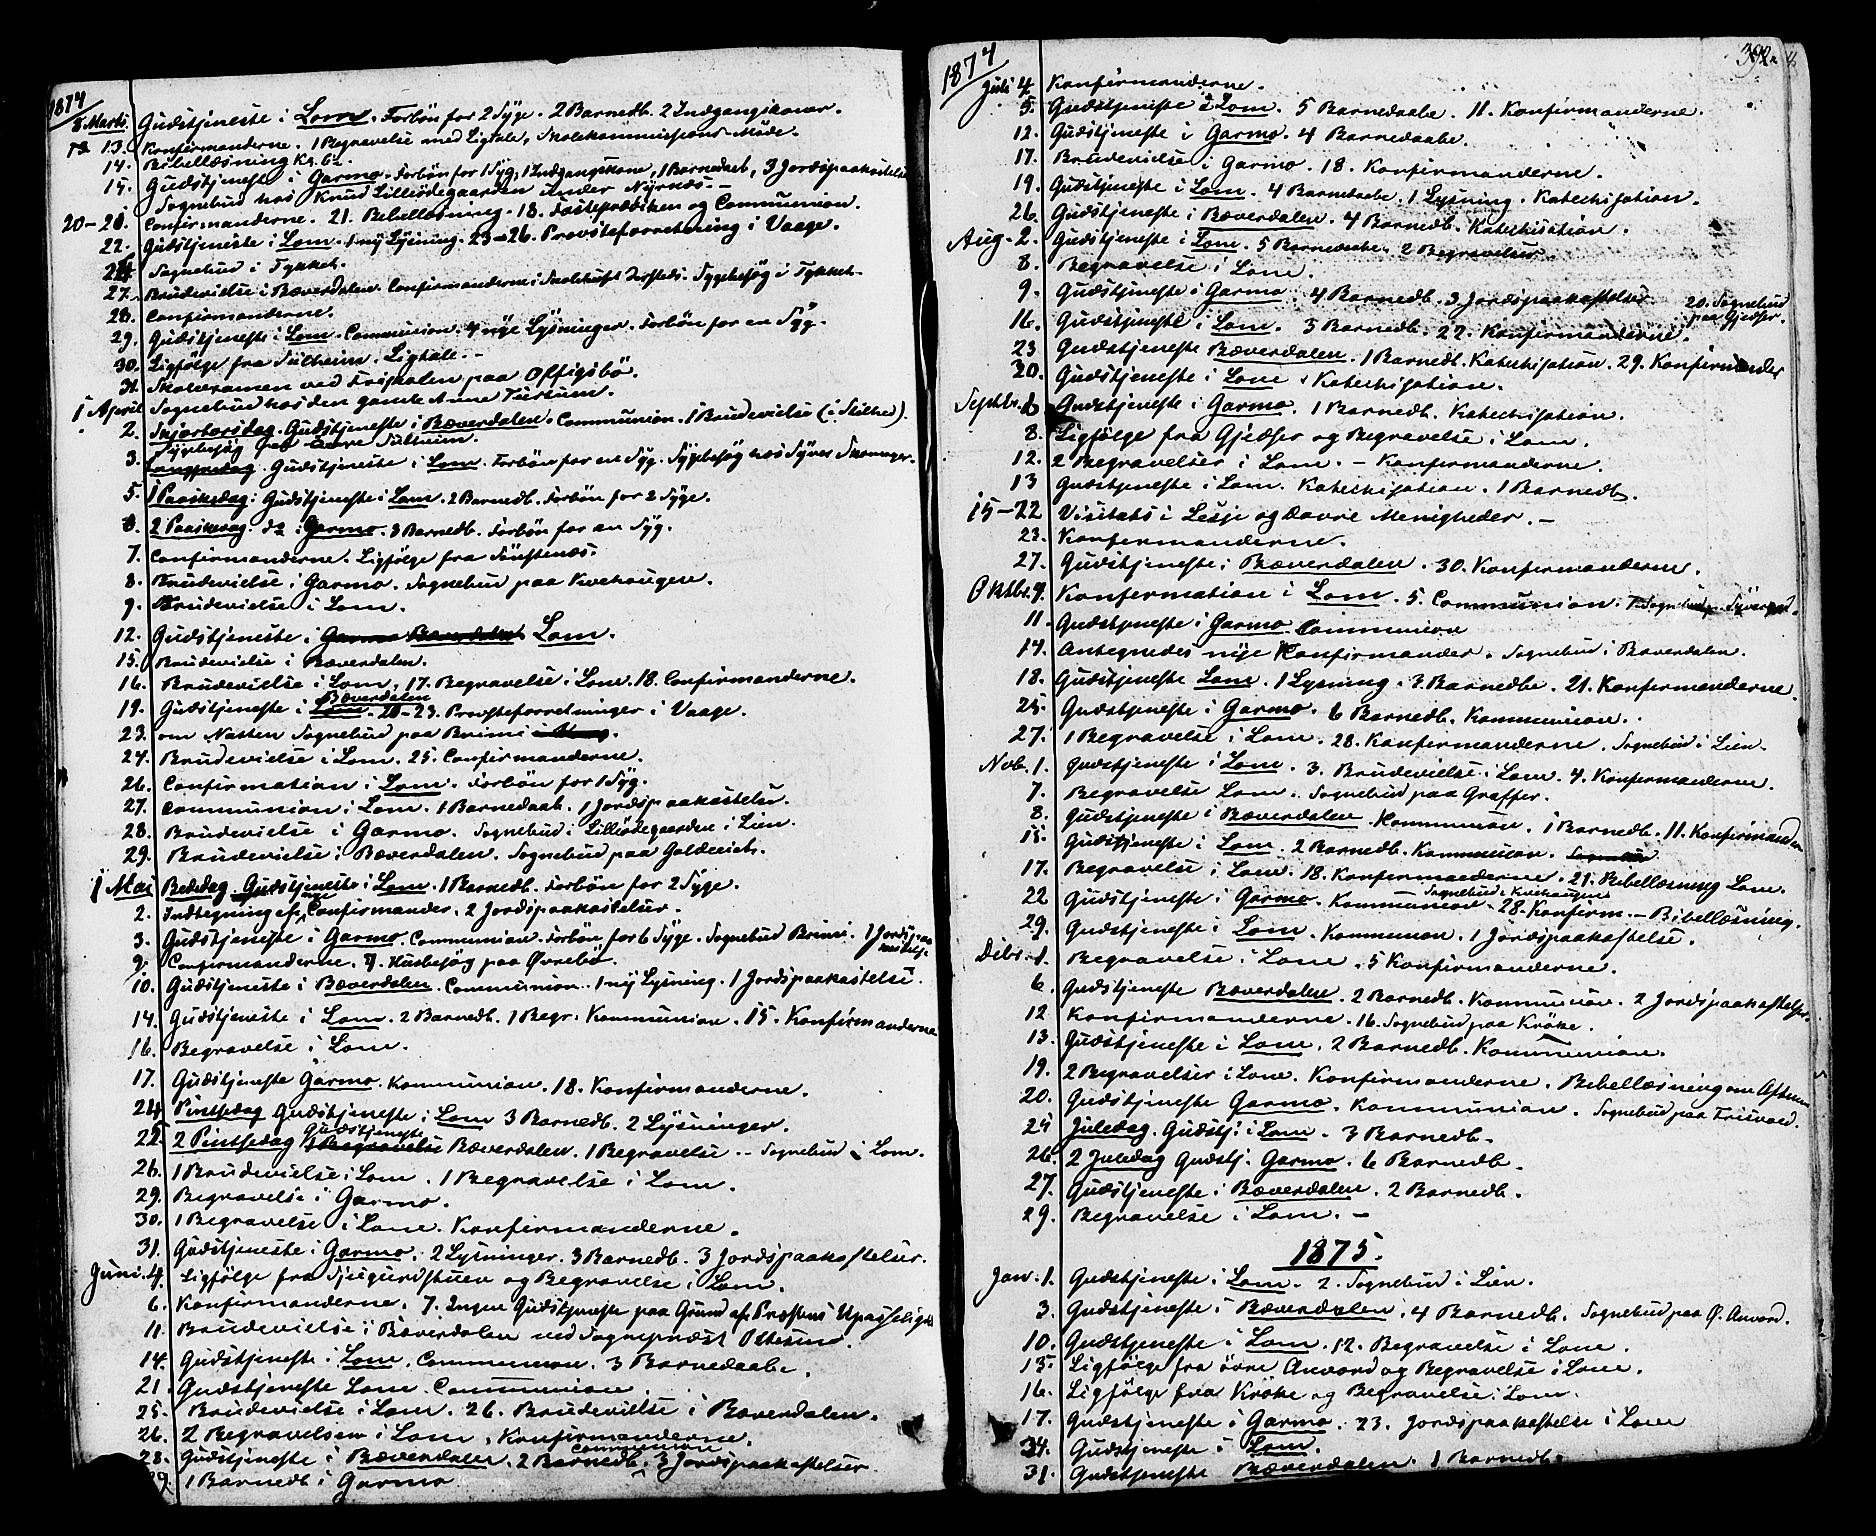 1874
8 Marts. Gudstjeneste i Lom. Forbön for 2 Syge. 2 Barnedb. 2 Indgangskonar.
13. Konfirmanderne. 1 Begravelse med Ligtale, Skolekommissions Möde.
14. Bibellæsning Kl. 6
15. Gudstjeneste i Garmo. Forbön for 1 Syg, 1 Indgangskone, 1 Barnedaab, 3 Jordspaakastelse
Sognebud hos Knud Lillödegaarden under Nyrnæs.
20-20. Confirmanderne. 21. Bibellæsning. 18. Fasteprædiken og Communion.
22. Gudstjeneste i Lom. 1 ny Lysning. 23-26. Provsteforretning i Vaage.
Sognebud i Tykket.
27. Brudevielse i Bæverdalen. Confirmanderne i Skolehuset Sygebesög i Tykket.
28. Confirmanderne.
29. Gudstjeneste i Lom. Communion. 4 nye Lysninger. Forbön for en Syg.
30. Ligfölge fra Sulheim. Ligtale. -
31. Skolexamen ved Friskolen paa Offigsbö.
1 April Sognebud hos den gamle Anne
2. Skjærtorsdag. Gudstjeneste i Bæverdalen. Communion. 1 Brudevielse
Sygebesög paa Sulheim.
3. Langfredag. Gudstjeneste i Lom. Forbön for en Syg. Sygebesög hos
5. 1 Paaskedag: Gudstjeneste i Lom. 2 Barnedb. Forbön for 2 Syge.
6. 2 Paaskedag. do i Garmo. 3 Barnedb. Forbön for en Syg.
7. Confirmanderne. Ligfölge fra
8. Brudevielse i Garmo. Sognebud paa Kvehougen.
9. Brudevielse i Lom.
12. Gudstjeneste i Garmo Bæverdalen Lom.
15. Brudevielse i Bæverdalen.
16. Brudevielse i Lom, 17. Begravelse i Lom. 18. Confirmanderne.
Bæverdalen
19. Gudstjeneste i Lom. 20-23. Provsteforretninger i Vaage.
23. om Natten Sognebud paa Brimi
24. Brudevielse i Lom. 25. Confirmanderne.
26. Confirmation i Lom. Forbön for 1 Syg.
27. Communion i Lom. 1 Barnedaab. 1 Jordspaakastelse.
28. Brudevielse i Garmo. Sognebud i Lillödegaarden i Lien.
29. Brudevielse i Bæverdalen. Sognebud paa
1 Mai Bededag. Gudstjeneste i Lom. 1 Barnedb. Forbön for 2 Syge.
2. Indtegning af nye Confirmander. 2 Jordspaakastelser.
3. Gudstjeneste i Garmo. Communion. Forbön for 6 Syge. Sognebud Brimi. 1 Jordspaakastelse
9. Confirmanderne. 7. Husbesög paa Øvrebø.
10. Gudstjeneste i Bæverdalen. Communion. 1 ny Lysning. 1 Jordspaakastelse.
14. Gudstjeneste i Lom. 2 Barnedb. 1 Begr. Kommunion. 15. Konfirmanderne
16. Begravelse i Lom.
17. Gudstjeneste Garmo. Kommunion. 18. Konfirmanderne.
24 Pintsedag Gudstjeneste i Lom 3 Barnedb. 2 Lysninger.
Gudstjeneste
2 Pintsedag 1 Begravelse Bæverdalen. 1 Begravelse - Sognebud i Lom.
26. 1 Brudevielse i Lom. 1 Begravelse i Lom.
29. Begravelse i Garmo.
30. 1 Begravelse i Lom. Konfirmanderne.
31. Gudstjeneste i Garmo. 2 Lysninger. 3 Barnedb. 3 Jordspaakastelser.
Juni. 4. Ligfölge fra og Begravelse i Lom.
6. Konfirmanderne. 7. Ingen Gudstjeneste paa Grund af Præstens Upasselighed
11. Brudevielse i Bæverdalen ved Sognepræst Ottesen.
14. Gudstjeneste i Lom. Communion. 3 Barnedaabe.
21. Gudstjeneste Lom. Communion.
25. Brudevielse i Lom. 26. Brudevielse i Bæverdalen.
26. 2 Begravelser i Lom, Konfirmanderne.
Communion
28. Gudstjeneste i Bæverdalen. 2 Barnedb. 3 Jordspaakastelser
29. 1 Barnedb i Garmo
1874
Juli 4 Konfirmanderne.
5. Gudstjeneste i Lom. 5 Barnedaabe. 11. Konfirmanderne.
12. Gudstjeneste i Garmo. 4 Barnedaabe.
17. Brudevielse i Garmo. 18. Konfirmanderne.
19. Gudstjeneste i Lom. 4 Barnedaabe. 1 Lysning. Katechisation.
26. Gudstjeneste i Bæverdalen. 4 Barnedb. Katechisation.
Aug. 2. Gudstjeneste i Lom. 5 Barnedaabe. 2 Begravelser.
8. Begravelse i Lom.
9. Gudstjeneste i Garmo. 4 Barnedb. 3 Jordspaakastelser 20. Sognebud
paa Gjedser.
16. Gudstjeneste i Lom. 3 Barnedb. 22. Konfirmanderne.
23 Gudstjeneste Bæverdalen. 1 Barnedb. Katechisation. 29. Konfirmander
30. Gudstjeneste i Lom. Katechisation.
Septbr. 6 Gudstjeneste i Garmo. 1 Barnedb. Katechisation.
8. Ligfölge fra Gjedser og Begravelse i Lom.
12. 2 Begravelser i Lom. - Konfirmanderne.
13 Gudstjeneste i Lom. Katechisation. 1 Barnedb.
15-22 Visitats i Lesje og Dovre Menigheder. -
23. Konfirmanderne.
27. Gudstjeneste i Bæverdalen. 30. Konfirmanderne.
Oktbr. 4. Konfirmation i Lom. 5. Communion.
11. Gudstjeneste i Garmo Communion
14. Antegnedes nye Konfirmander. Sognebud i Bæverdalen.
18. Gudstjeneste Lom. 1 Lysning. 3 Barnedbe. 21. Konfirmanderne.
25. Gudstjeneste i Garmo. 6 Barnedb. Kommunion.
27. 1 Begravelse i Lom. 28. Konfirmanderne. Sognebud i Lien.
Nvb. 1. Gudstjeneste i Lom. 3. Brudevielse i Lom. 4. Konfirmanderne.
7. Begravelse Lom. Sognebud paa Graffer.
8. Gudstjeneste i Bæverdalen. Kommunion. 1 Barnedb. 11. Konfirmand
15. Gudstjeneste i Lom. 2 Barnedb. Kommunion.
17. Begravelse i Lom. 18. Konfirmanderne. 21. Bibellæsning Lom.
Sognebud i Kvehougen
22 Gudstjeneste i Garmo. Kommunion. 28. Konfirm. - Bibellæsning.
29. Gudstjeneste i Lom. Kommunion. 1 Jordspaakastelse.
Decbr. 1. Begravelse i Lom. 5 Konfirmanderne.
6. Gudstjeneste Bæverdalen. 2 Barnedb. Kommunion. 2 Jordspaakastelser.
12 Konfirmanderne. 16. Sognebud paa Kröke.
13. Gudstjeneste i Lom. 2 Barnedb. Kommunion.
19. 2 Begravelser i Lom. Konfirmanderne. Bibellæsning om Aftenen
20. Gudstjeneste Garmo. Kommunion. Sognebud paa Frisvold.
25 Juledag. Gudstj. i Lom. 3 Barnedb.
26. 2 Juledag Gudstj. Garmo. 6 Barnedb.
27. Gudstjeneste i Bæverdalen. 2 Barnedb.
29. Begravelse i Lom. -
1875.
Jan. 1. Gudstjeneste i Lom. 2. Sognebud i Lien.
3. Gudstjeneste i Bæverdalen. 4 Barnedb. Sognebud paa Ø. Anvord.
10. Gudstjeneste i Lom. 12. Begravelse i Lom.
15. Ligfölge fra övre Anvord og Begravelse i Lom.
16. Ligfölge fra Kröke og Begravelse i Lom.
17. Gudstjeneste i Garmo. 23. Jordspaakastelse i Lom
24. Gudstjeneste i Lom.
31. Gudstjeneste Bæverdalen. 1 Barnedb.